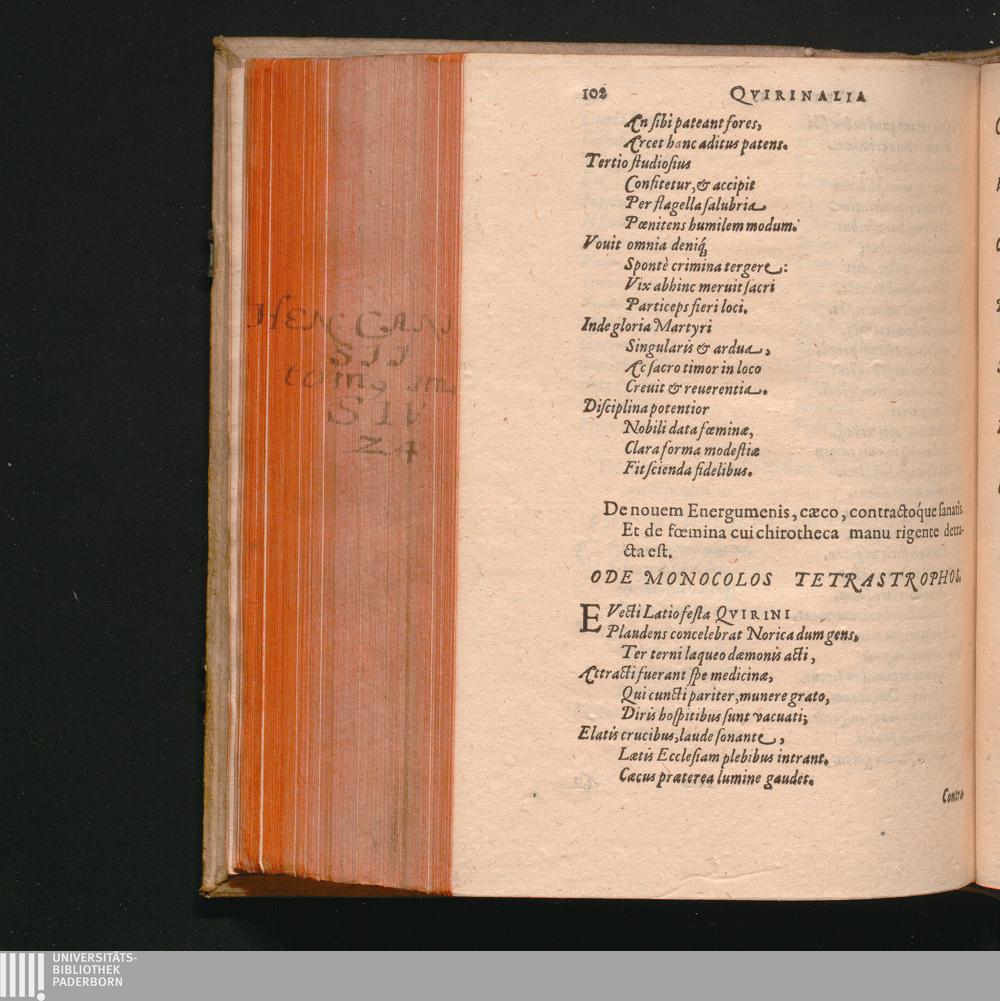 102 QVIRINALIA
An sibi pateant fores,
Arcet hanc aditus patens.
Tertio studiosius
Confitetur, & accipit
Per flagella salubria
Pœnitens humilem modum.
Vouit omnia deniq́;
Spontè crimina tergere:
Vix abhinc meruit sacri
Particeps fieri loci.
Inde gloria Martyri
Singularis & ardua,
Ac sacro timor in loco
Creuit & reuerentia.
Disciplina potentior
Nobili data fœminæ,
Clara forma modestiæ
Fit scienda fidelibus.
De nouem Energumenis, cæco, contractoq́ue sanatis.
Et de fœmina cui chirotheca manu rigente detra-
cta est.
ODE MONOCOLOS TETRASTROPHOS.
EVecti Latio festa QVIRINI
Plaudens concelebrat Norica dum gens,
Ter terni laqueo dæmonis acti,
Attracti fuerant spe medicinæ,
Qui cuncti pariter, munere grato,
Diris hospitibus sunt vacuati;
Elatis crucibus, laude sonante,
Lætis Ecclesiam plebibus intrant.
Cæcus præterea lumine gaudet.
Contra-
HEN CANI
SII
tom. 
SIV
24
UNIVERSITÄTS-
BIBLIOTHEK
PADERBORN